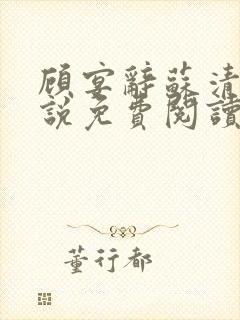 顾宴辭蘇清
說免費閱讀
董行都